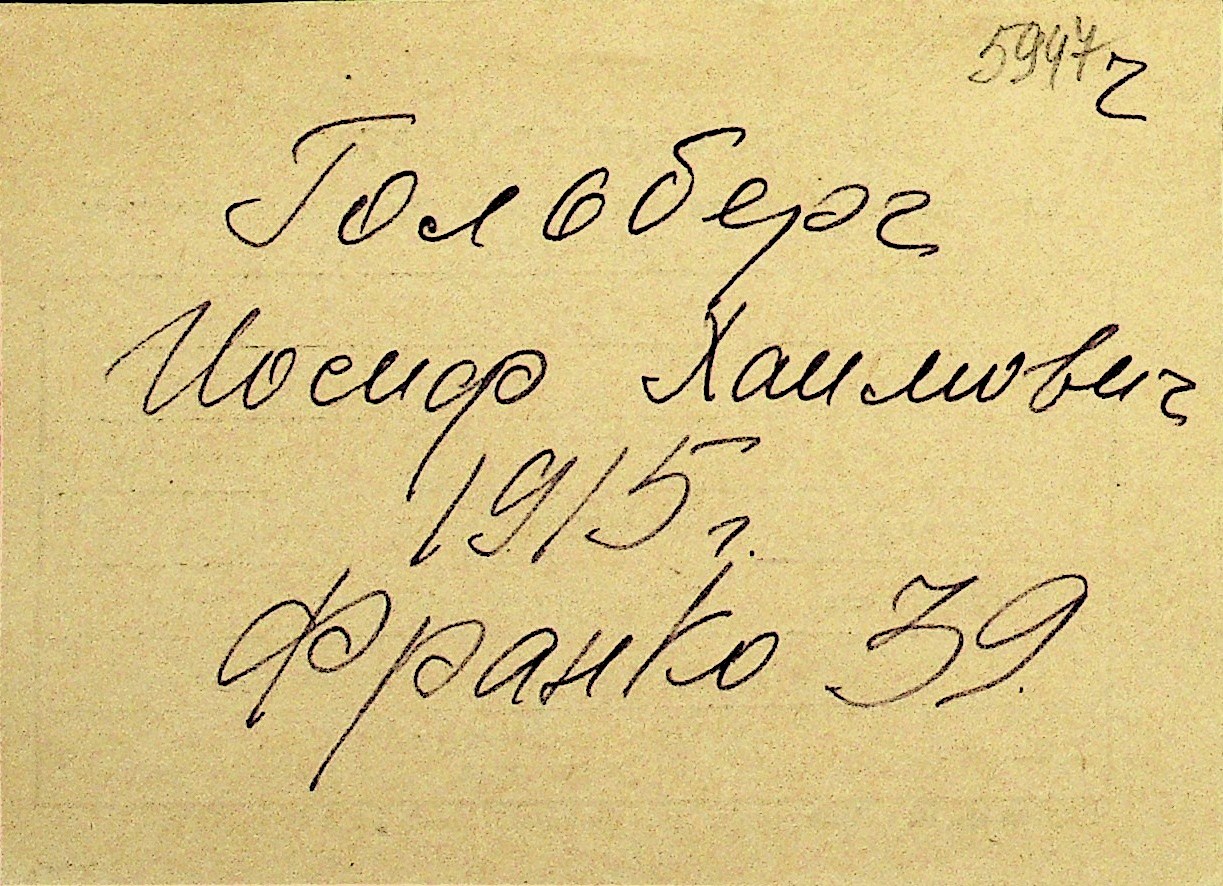 5947 ч
Гольберг
Иосиф Хаимович
1915 г.
Франко 39